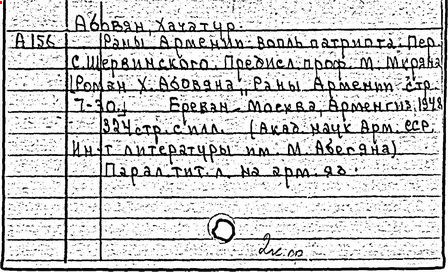 Абовян, Хачатур.
А 156 Раны Армении. Вопль патриота. Пер.
С. Шервинского. Предисл. проф. М. Мкряна
[Роман Х. Абовяна „Раны Армении“ стр.
7-30.] Ереван-Москва, Армгиз, 1948
324 стр. с илл. (Акад. наук Арм. ССР.
Ин-т литературы им. М. Абегяна)
Парал. тит. л. на арм. яз.